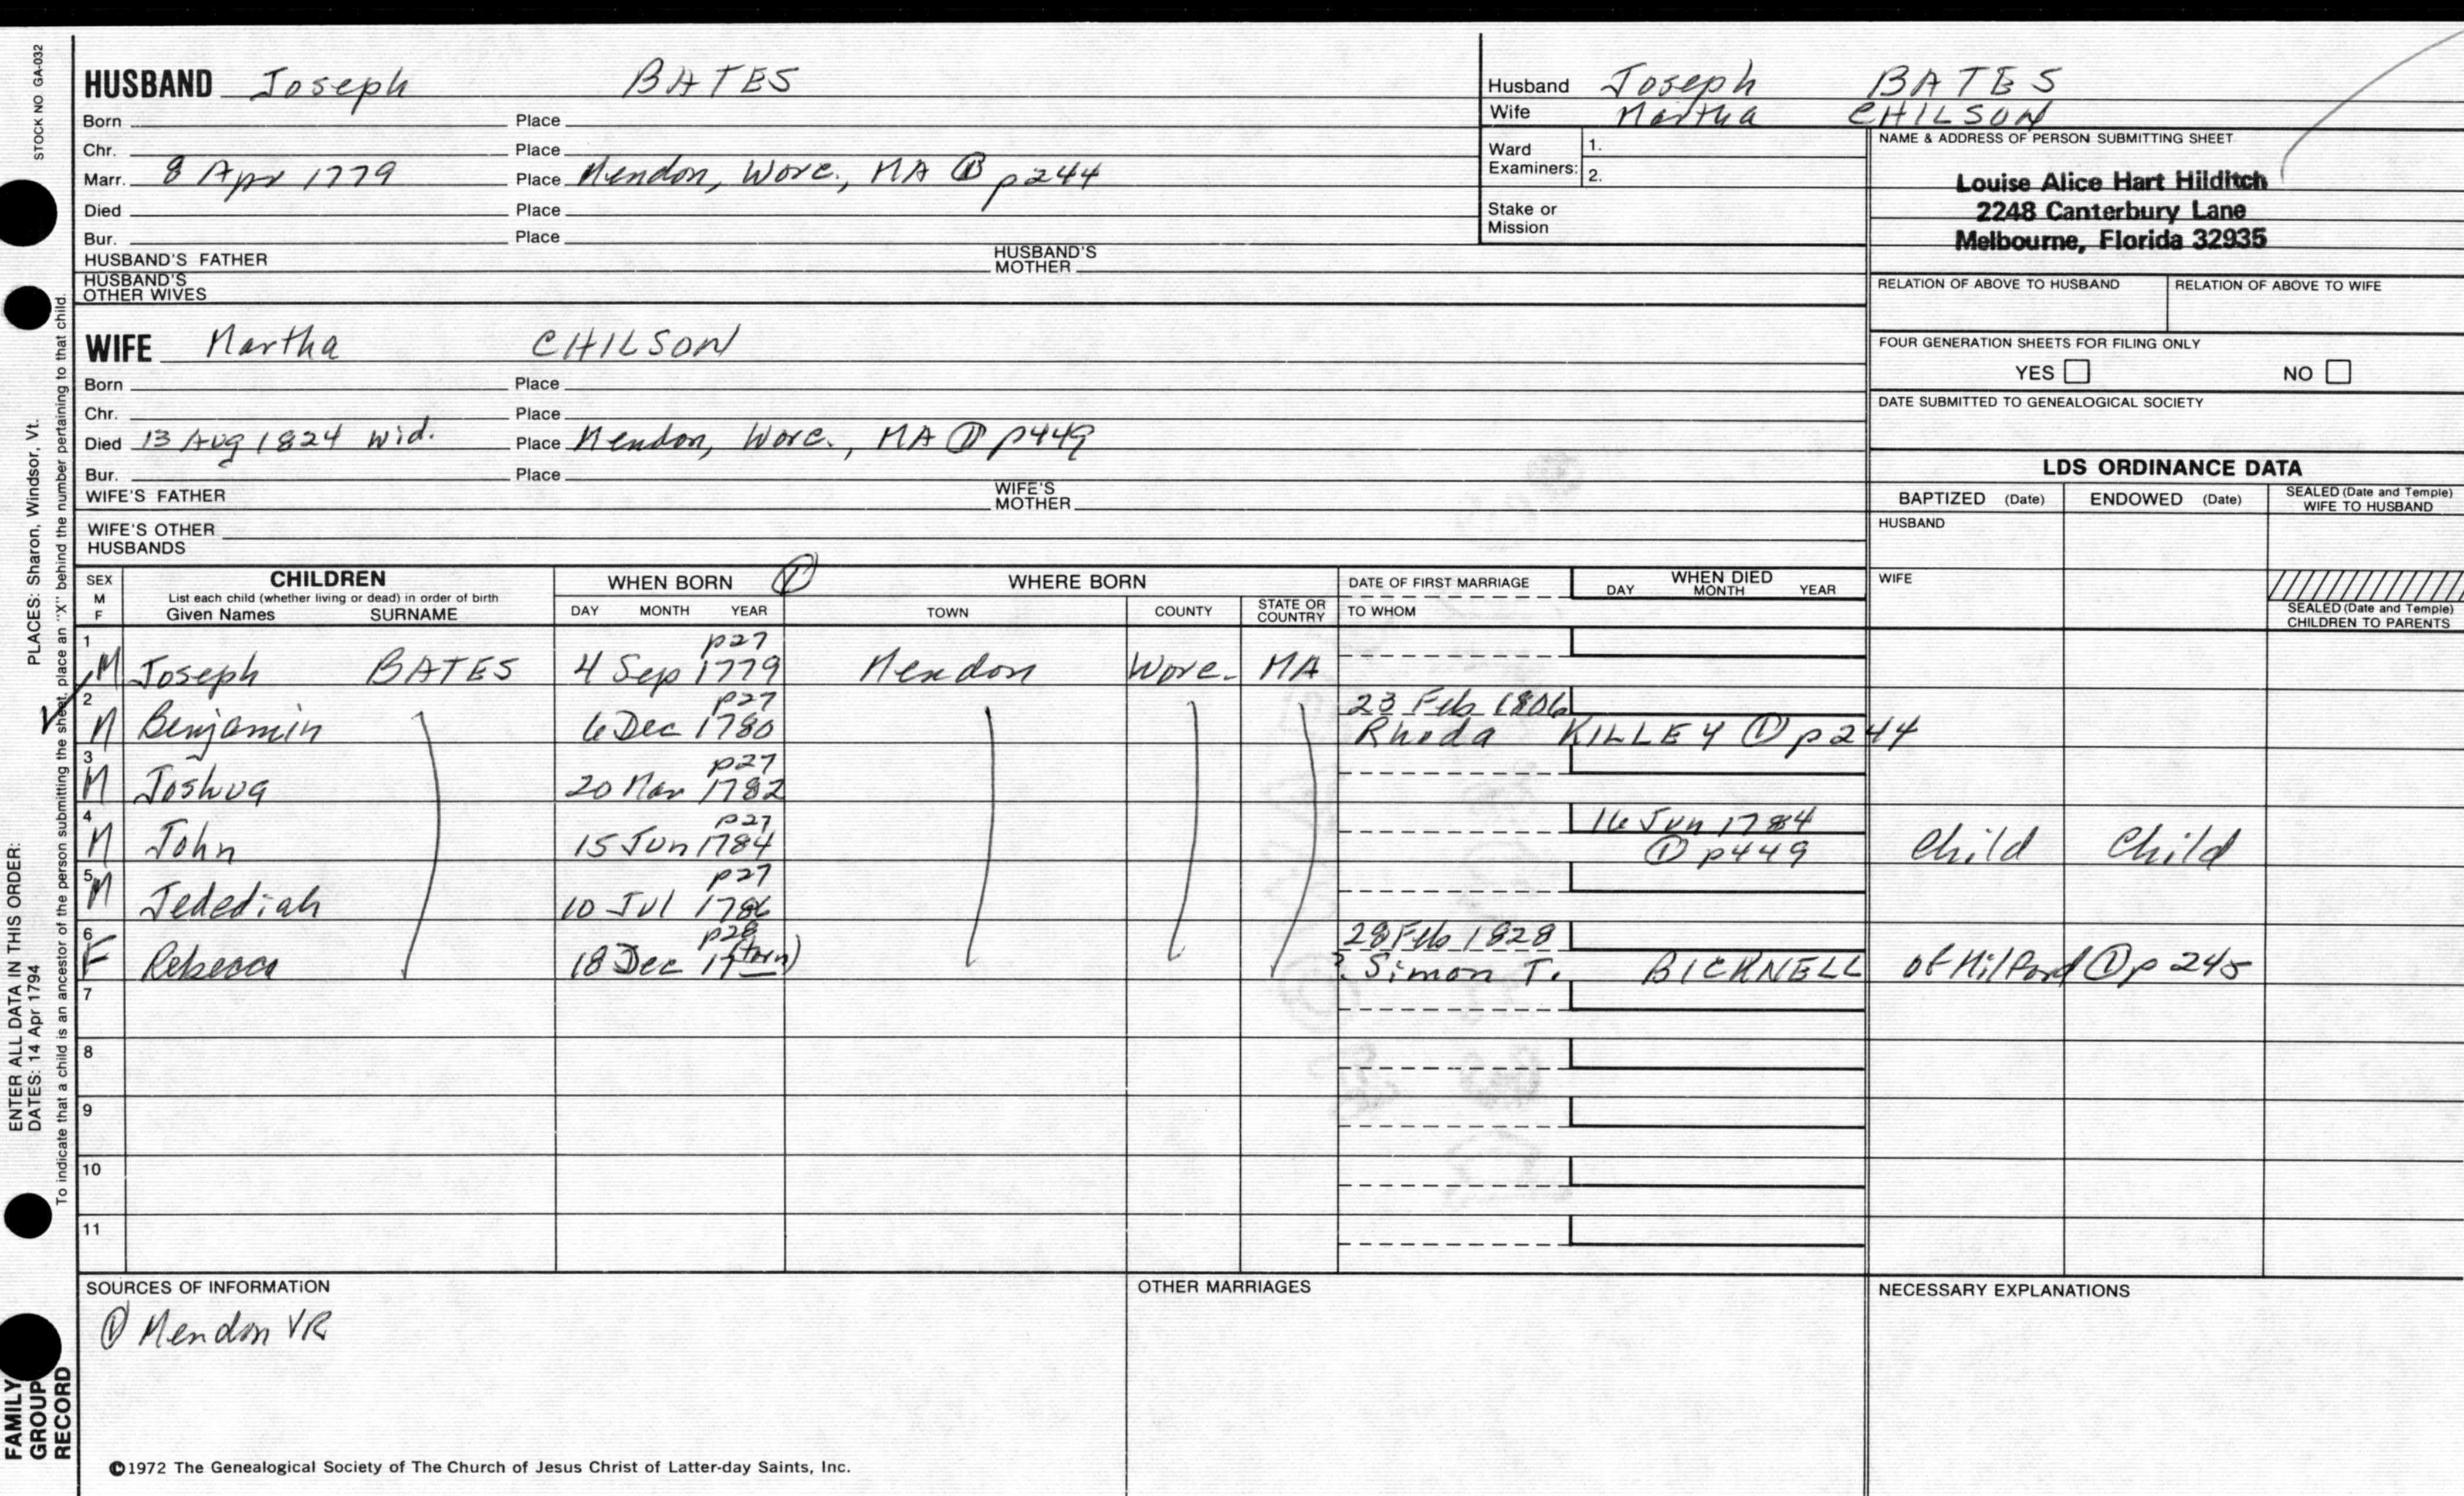 STOCK NO GA-032
PLACES: Sharon, Windsor, Vt.
ENTER ALL DATA IN THIS ORDER:
DATES: 14 Apr 1794
To indicate that a child is an ancestor of the person submitting the sheet, place an "X" behind the number pertaining to that child.
FAMILY GROUP RECORD
HUSBAND Joseph BATES
Born Place
Chr. Place
Marr. 8 Apr 1779 Place Mendon, Worc., MA ① p244
Died Place
Bur. Place
HUSBAND'S FATHER HUSBAND'S MOTHER
HUSBAND'S OTHER WIVES
WIFE Martha CHILSON
Born Place
Chr. Place
Died 13 Aug 1824 wid. Place Mendon, Worc., MA ① p449
Bur. Place
WIFE'S FATHER WIFE'S MOTHER
WIFE'S OTHER HUSBANDS
Husband Joseph BATES
Wife Martha CHILSON
Ward Examiners: 1.
2.
Stake or Mission
NAME & ADDRESS OF PERSON SUBMITTING SHEET
Louise Alice Hart Hilditch
2248 Canterbury Lane
Melbourne, Florida 32935
RELATION OF ABOVE TO HUSBAND RELATION OF ABOVE TO WIFE
FOUR GENERATION SHEETS FOR FILING ONLY
YES NO
DATE SUBMITTED TO GENEALOGICAL SOCIETY
LDS ORDINANCE DATA
BAPTIZED (Date) ENDOWED (Date) SEALED (Date and Temple) WIFE TO HUSBAND
HUSBAND
WIFE
SEALED (Date and Temple) CHILDREN TO PARENTS
SEX M F CHILDREN WHEN BORN ① WHERE BORN DATE OF FIRST MARRIAGE WHEN DIED
List each child (whether living or dead) in order of birth
Given Names SURNAME DAY MONTH YEAR TOWN COUNTY STATE OR COUNTRY TO WHOM DAY MONTH YEAR
1 p27
M Joseph BATES 4 Sep 1779 Mendon Worc. MA
2 p27 23 Feb 1806
M Benjamin 6 Dec 1780 Rhoda KILLEY ① p244
3 p27
M Joshua 20 Mar 1782
4 p27 16 Jun 1784
M John 15 Jun 1784 ① p449 Child Child
5 p27
M Jedediah 10 Jul 1786
6 p28 28 Feb 1828
F Rebecca 18 Dec 17__ (torn) ? Simon T. BICKNELL of Milford ① p245
7
8
9
10
11
SOURCES OF INFORMATION OTHER MARRIAGES NECESSARY EXPLANATIONS
① Mendon VR
©1972 The Genealogical Society of The Church of Jesus Christ of Latter-day Saints, Inc.